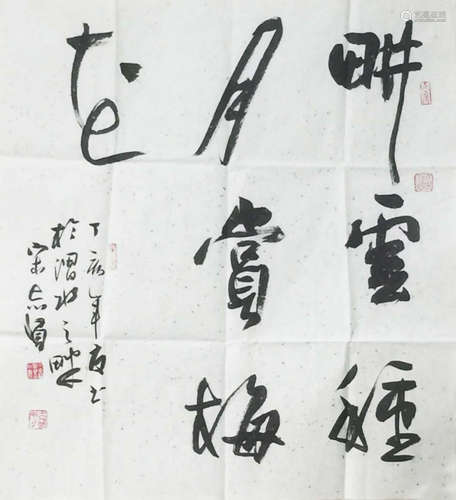 畊雲種
月賞梅
花
丁亥年夏书
於渭水之畔
宋志